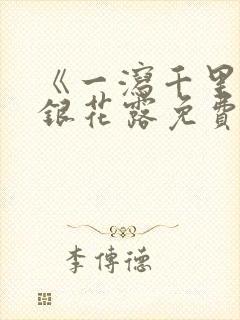 《一瀉千里
銀花露免費
李傳德